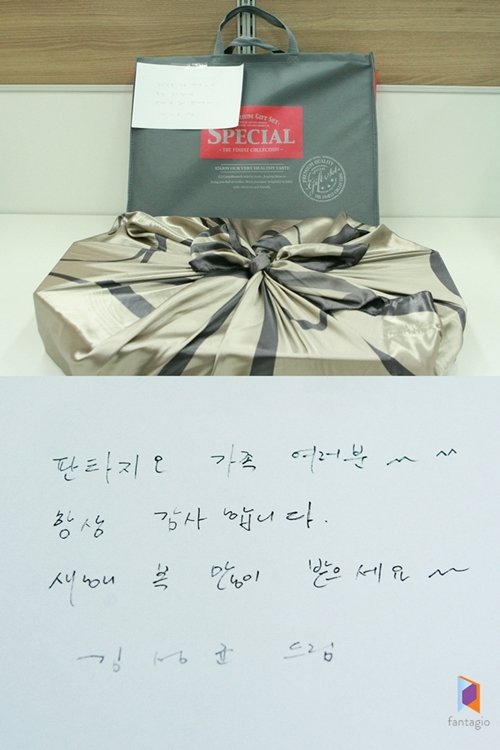 PREMIUM GIFT SET
SPECIAL
- THE FINEST COLLECTION -
ENJOY OUR VERY HEALTHY TASTE
PREMIUM QUALITY
Gift Set
판타지오 가족 여러분~ ~
항상 감사합니다.
새해 복 많이 받으세요~
김성균 드림
fantagio